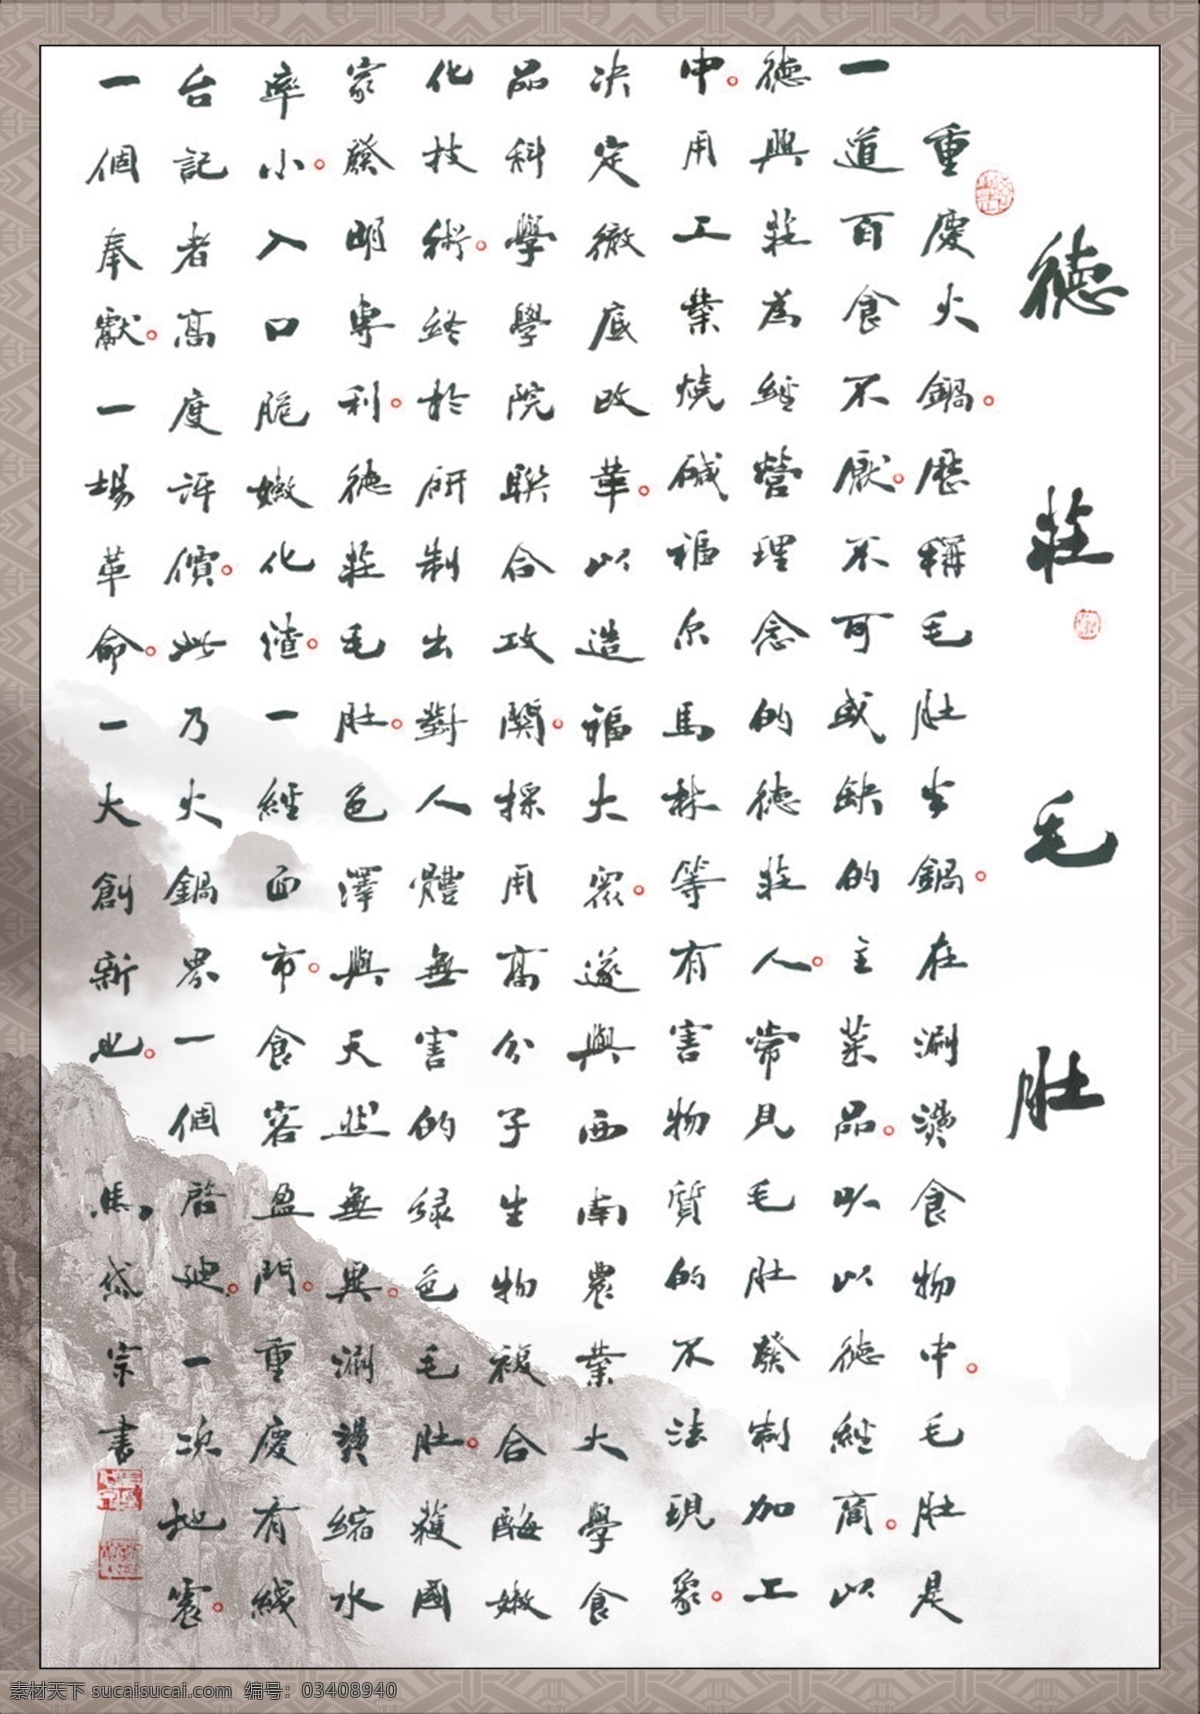 徳莊毛肚
重慶火鍋。歷稱毛肚火鍋。在涮燙食物中。毛肚是
一道百食不厭。不可或缺的主菜品。所以徳經商。以
徳興莊為經營理念的徳莊人。常見毛肚發制加工
中。用工業燒碱福尔馬林等有害物質的不法現象。
决定徹底改革。以造福大眾。遂與西南農業大學食
品科學學院聯合攻関。採用高分子生物複合酶嫩
化技術。終於研制出對人體無害的绿色毛肚。獲國
家發明專利。徳莊毛肚。色澤與天然無異。涮燙縮水
率小。入口脆嫩化渣。一經面市。食客盈門。重慶有綫
台記者高度評價。此乃火鍋界一個啓迪。一次地震。
一個奉獻。一場革命。一大創新也。馬岱宗書
素材天下 sucaisucai.com 编号：03408940